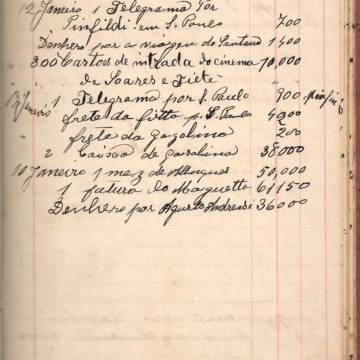 12 Janeiro 1 Telegrama por
Pinfildi em S. Paulo 700
Denhero por a viagen do Santano 1400
" 300 Cartões de intrada do cinema 70,000
de Soares e Fiete
13 Janeiro 1 Telegrama por S. Paulo 900
" frete da fitta p. S. Paulo 4900
" frete da Gazolina 200
2 Caixão de Gasolina 38000
10 Janeiro 1 mez de Allugues 50,000
1 fatura do Maguetta 61150
Denhero por Agusto Andreasi 36000